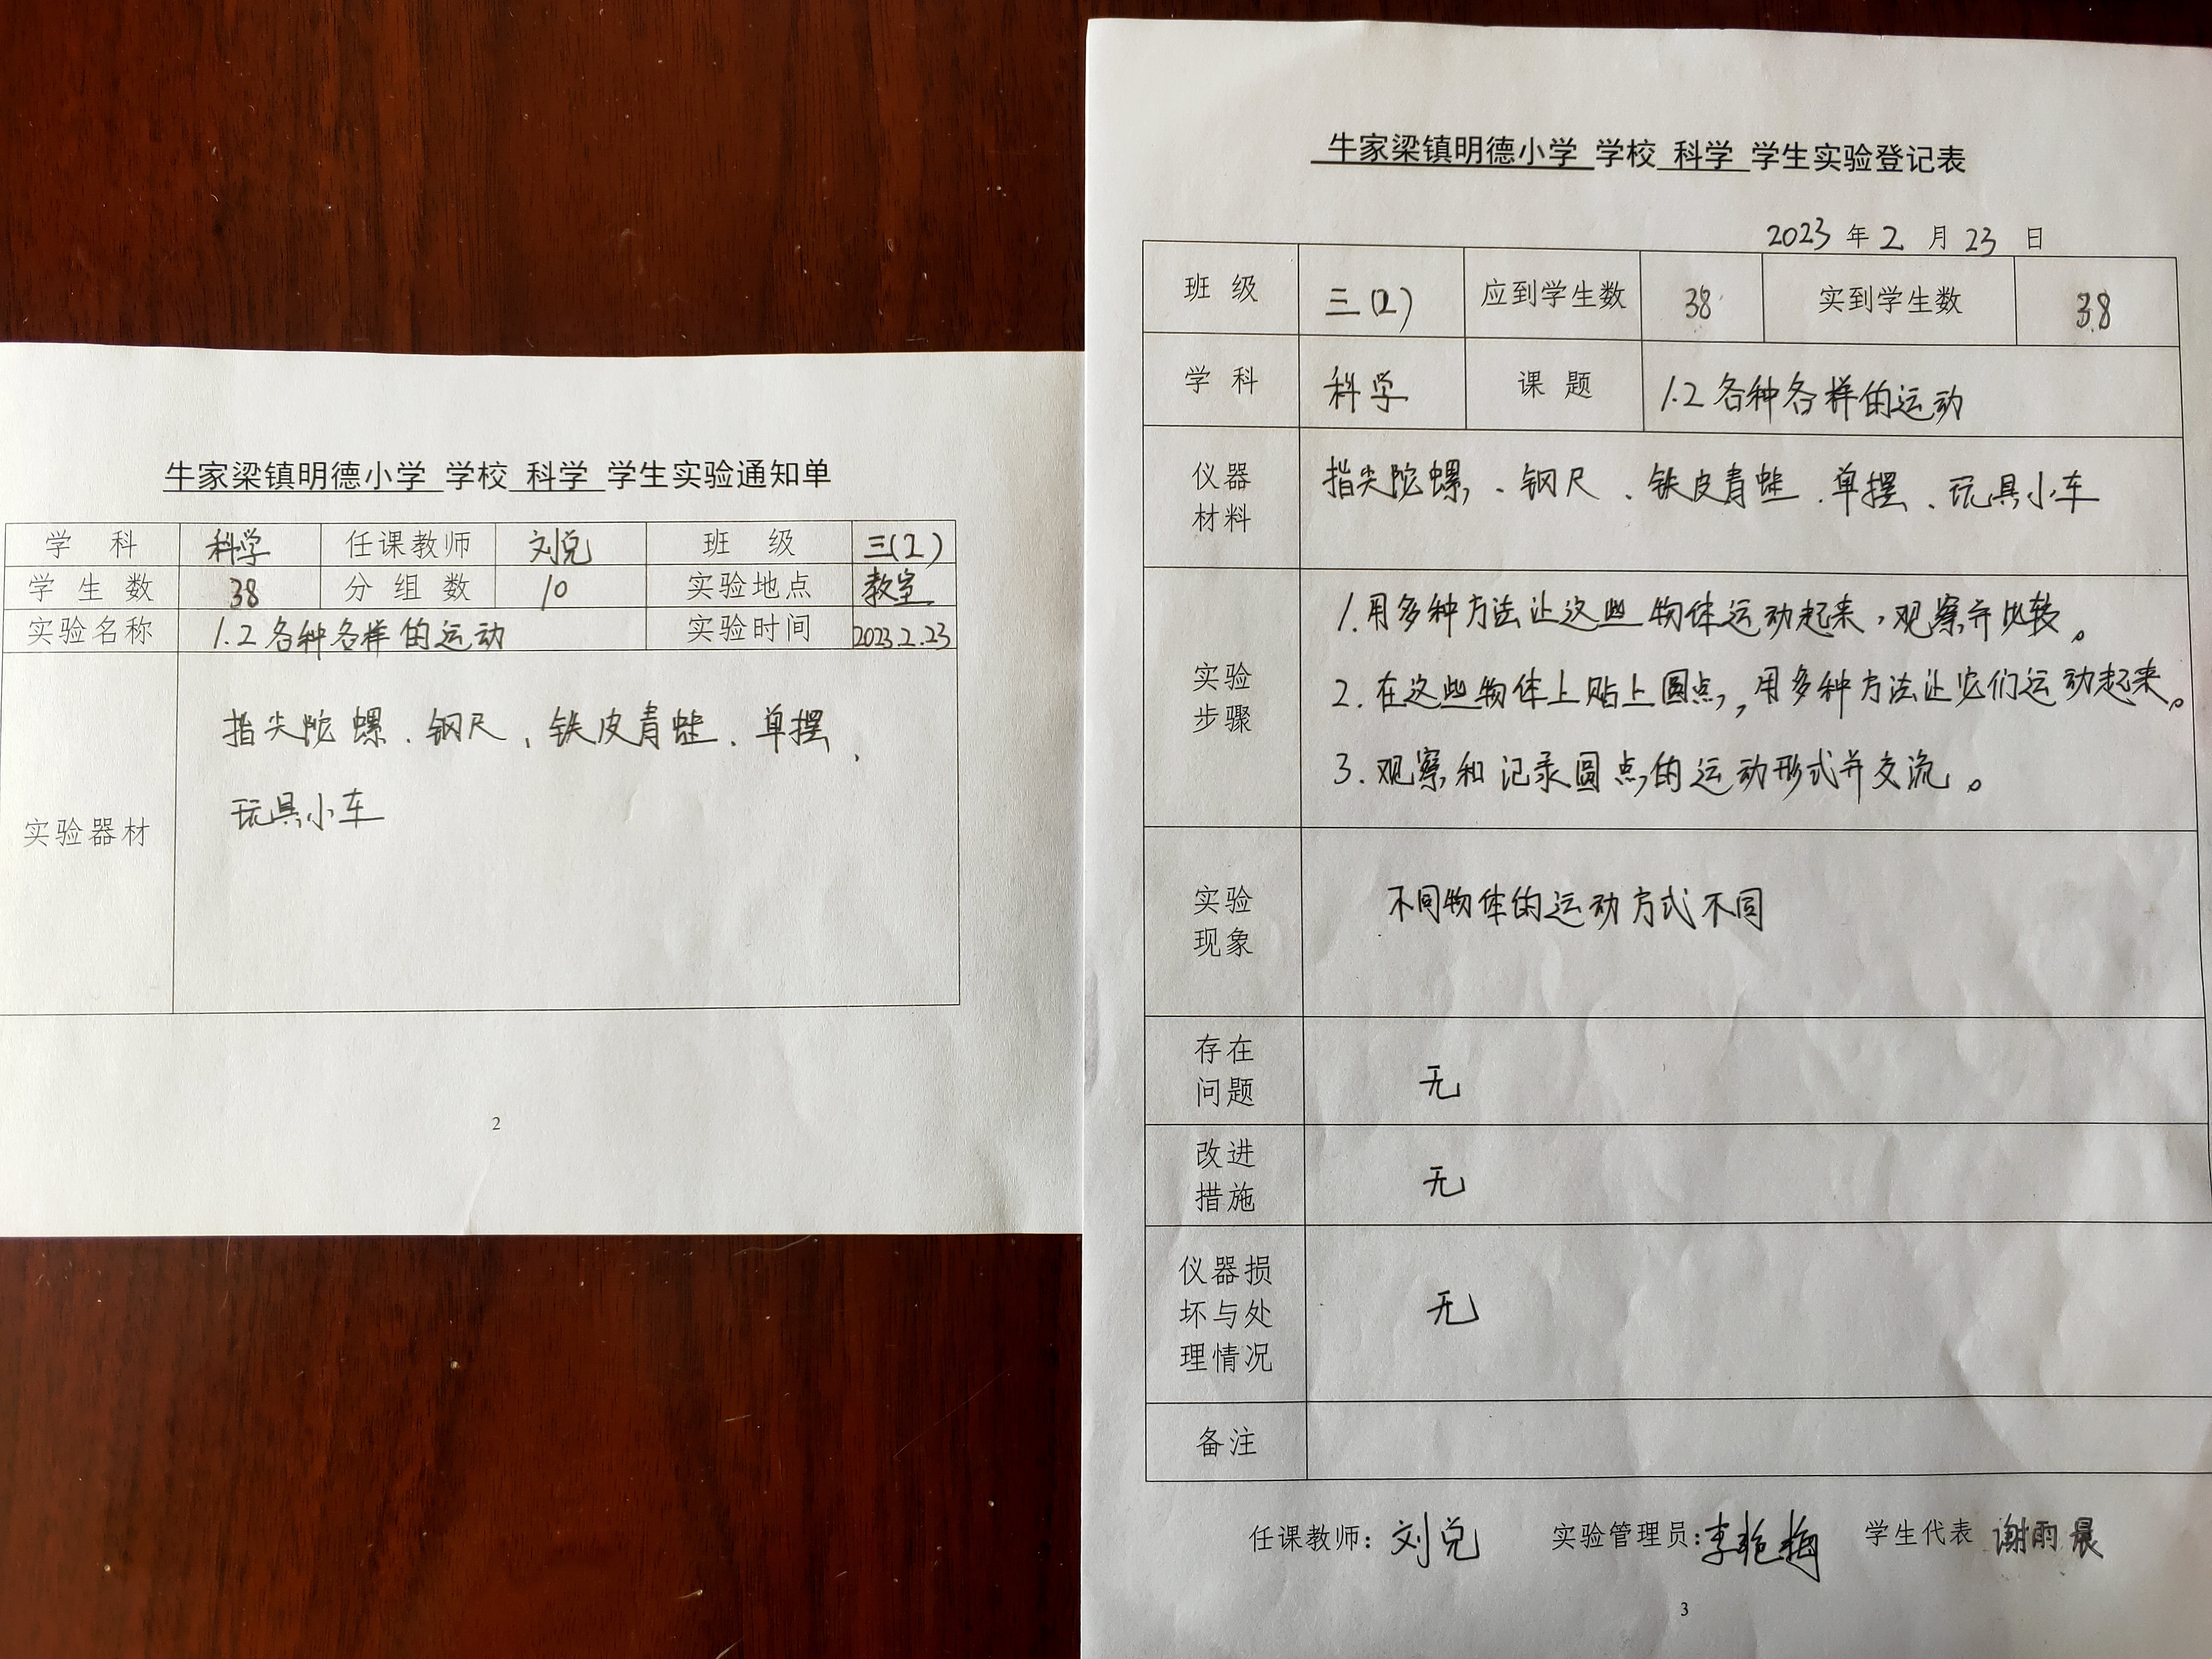 牛家梁镇明德小学 学校 科学 学生实验通知单
学 科 科学 任课教师 刘兑 班 级 三(2)
学 生 数 38 分 组 数 10 实验地点 教室
实验名称 1.2各种各样的运动 实验时间 2023.2.23
指尖陀螺、钢尺、铁皮青蛙、单摆、
玩具小车
实验器材
2
牛家梁镇明德小学 学校 科学 学生实验登记表
2023 年 2 月 23 日
班 级 三(2) 应到学生数 38 实到学生数 38
学 科 科学 课 题 1.2各种各样的运动
仪器
材料
指尖陀螺、钢尺、铁皮青蛙、单摆、玩具小车
实验
步骤
1.用多种方法让这些物体运动起来,观察并比较。
2.在这些物体上贴上圆点,用多种方法让它们运动起来。
3.观察和记录圆点的运动形式并交流。
实验
现象
不同物体的运动方式不同
存在
问题
无
改进
措施
无
仪器损
坏与处
理情况
无
备注
任课教师: 刘兑 实验管理员: 李艳梅 学生代表 谢雨晨
3